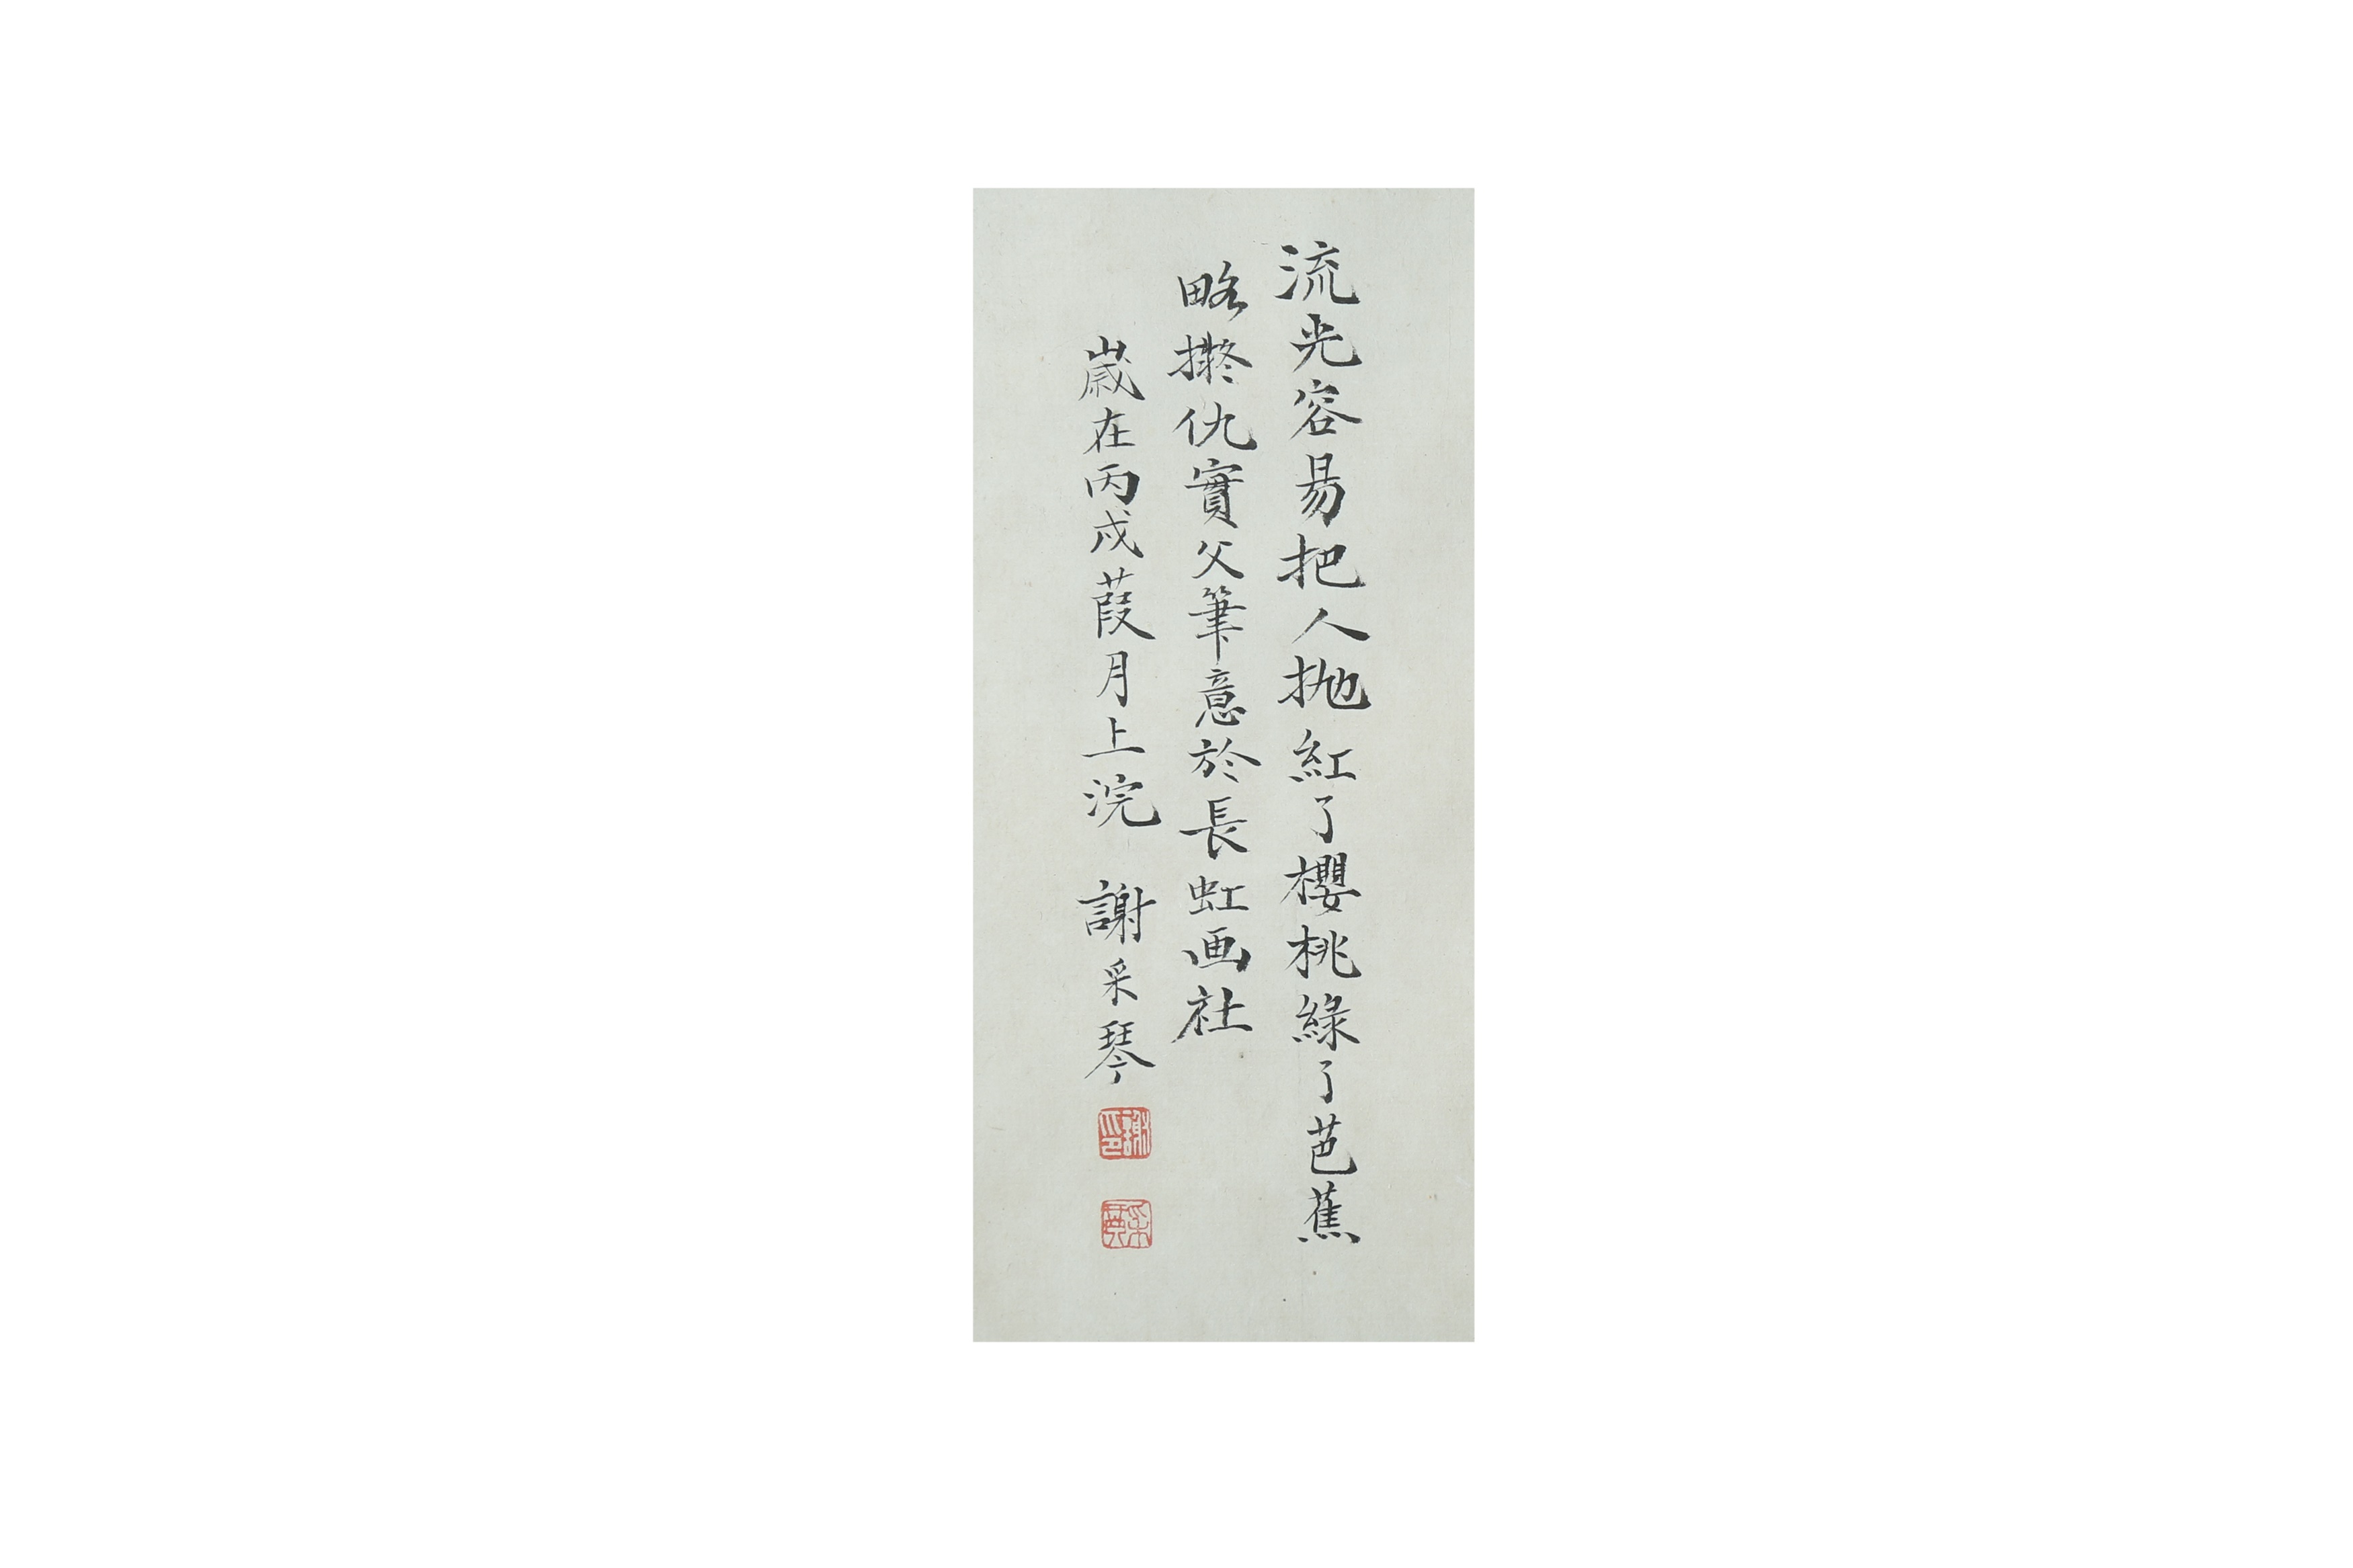 流光容易把人抛紅了櫻桃綠了芭蕉
略擬仇實父筆意於長虹画社
歲在丙戌葭月上浣 謝采琴
謝印
采琴